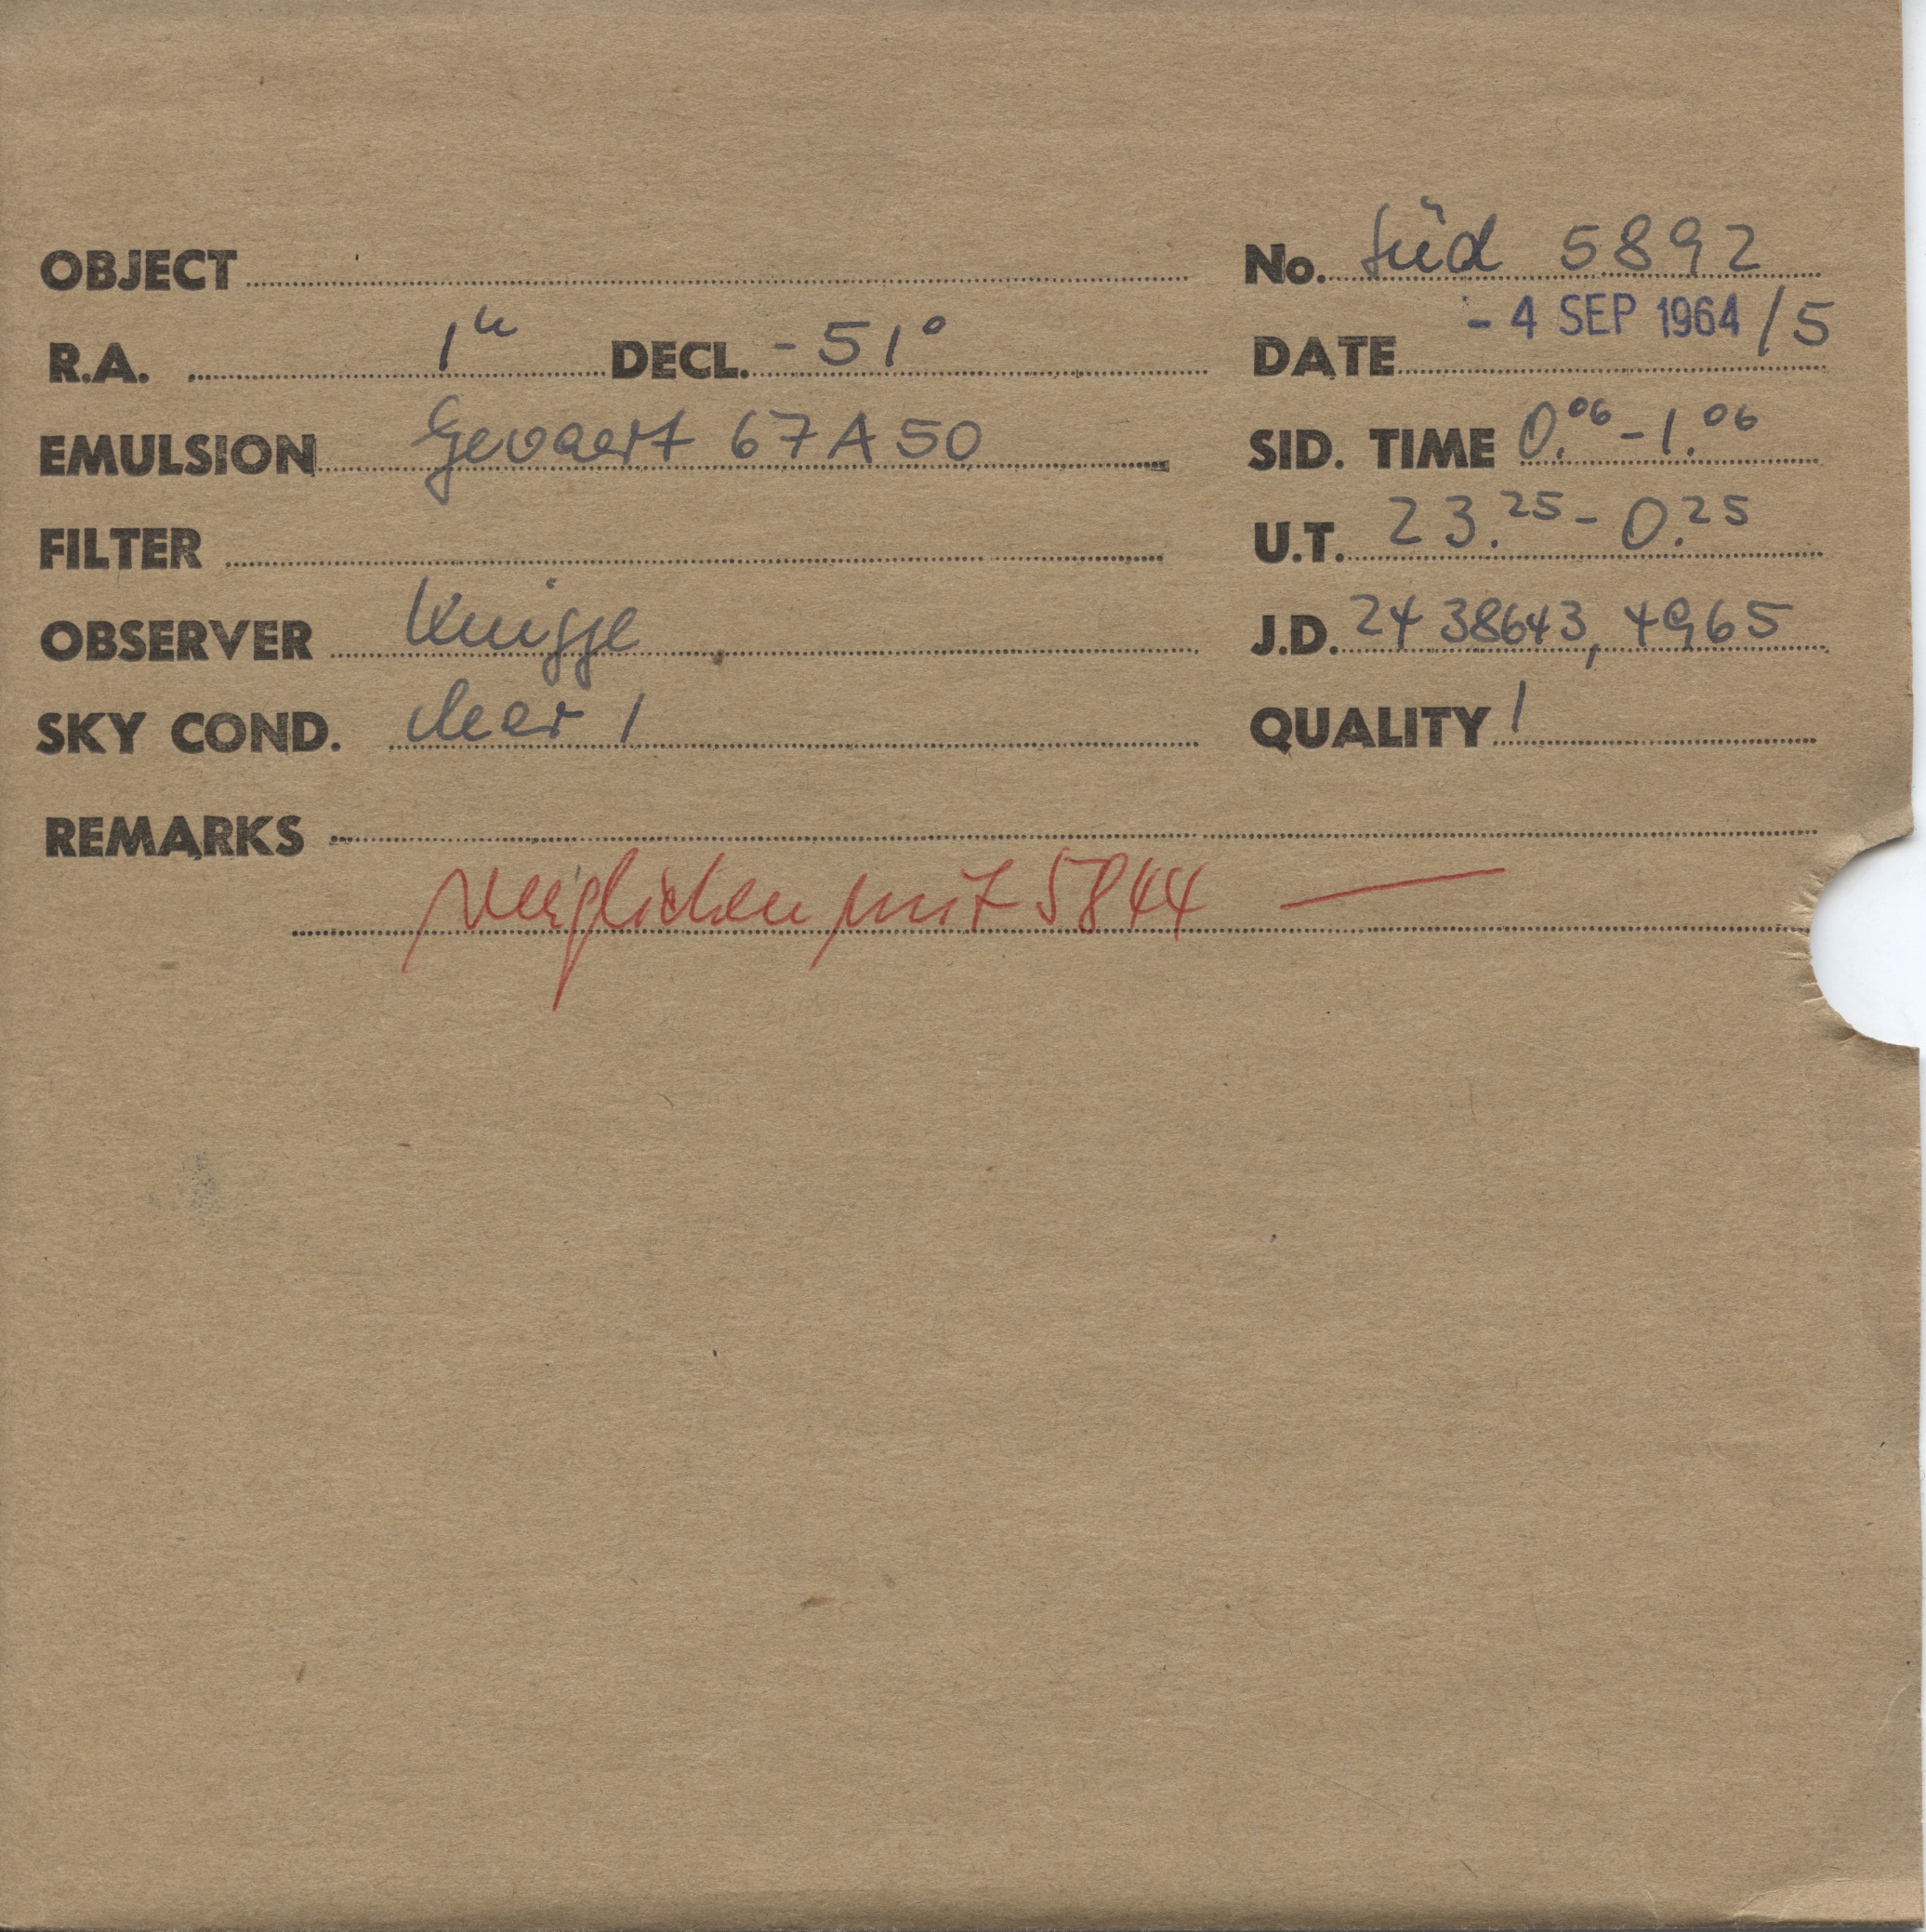 OBJECT No. Süd 5892
R.A. 1h DECL. -51° DATE - 4 SEP 1964 /5
EMULSION Gevaert 67A50 SID. TIME 0.06 - 1.06
FILTER U.T. 23.25 - 0.25
OBSERVER Knigge J.D. 24 38643, 4965
SKY COND. clear 1 QUALITY 1
REMARKS
verglichen mit 5844 —